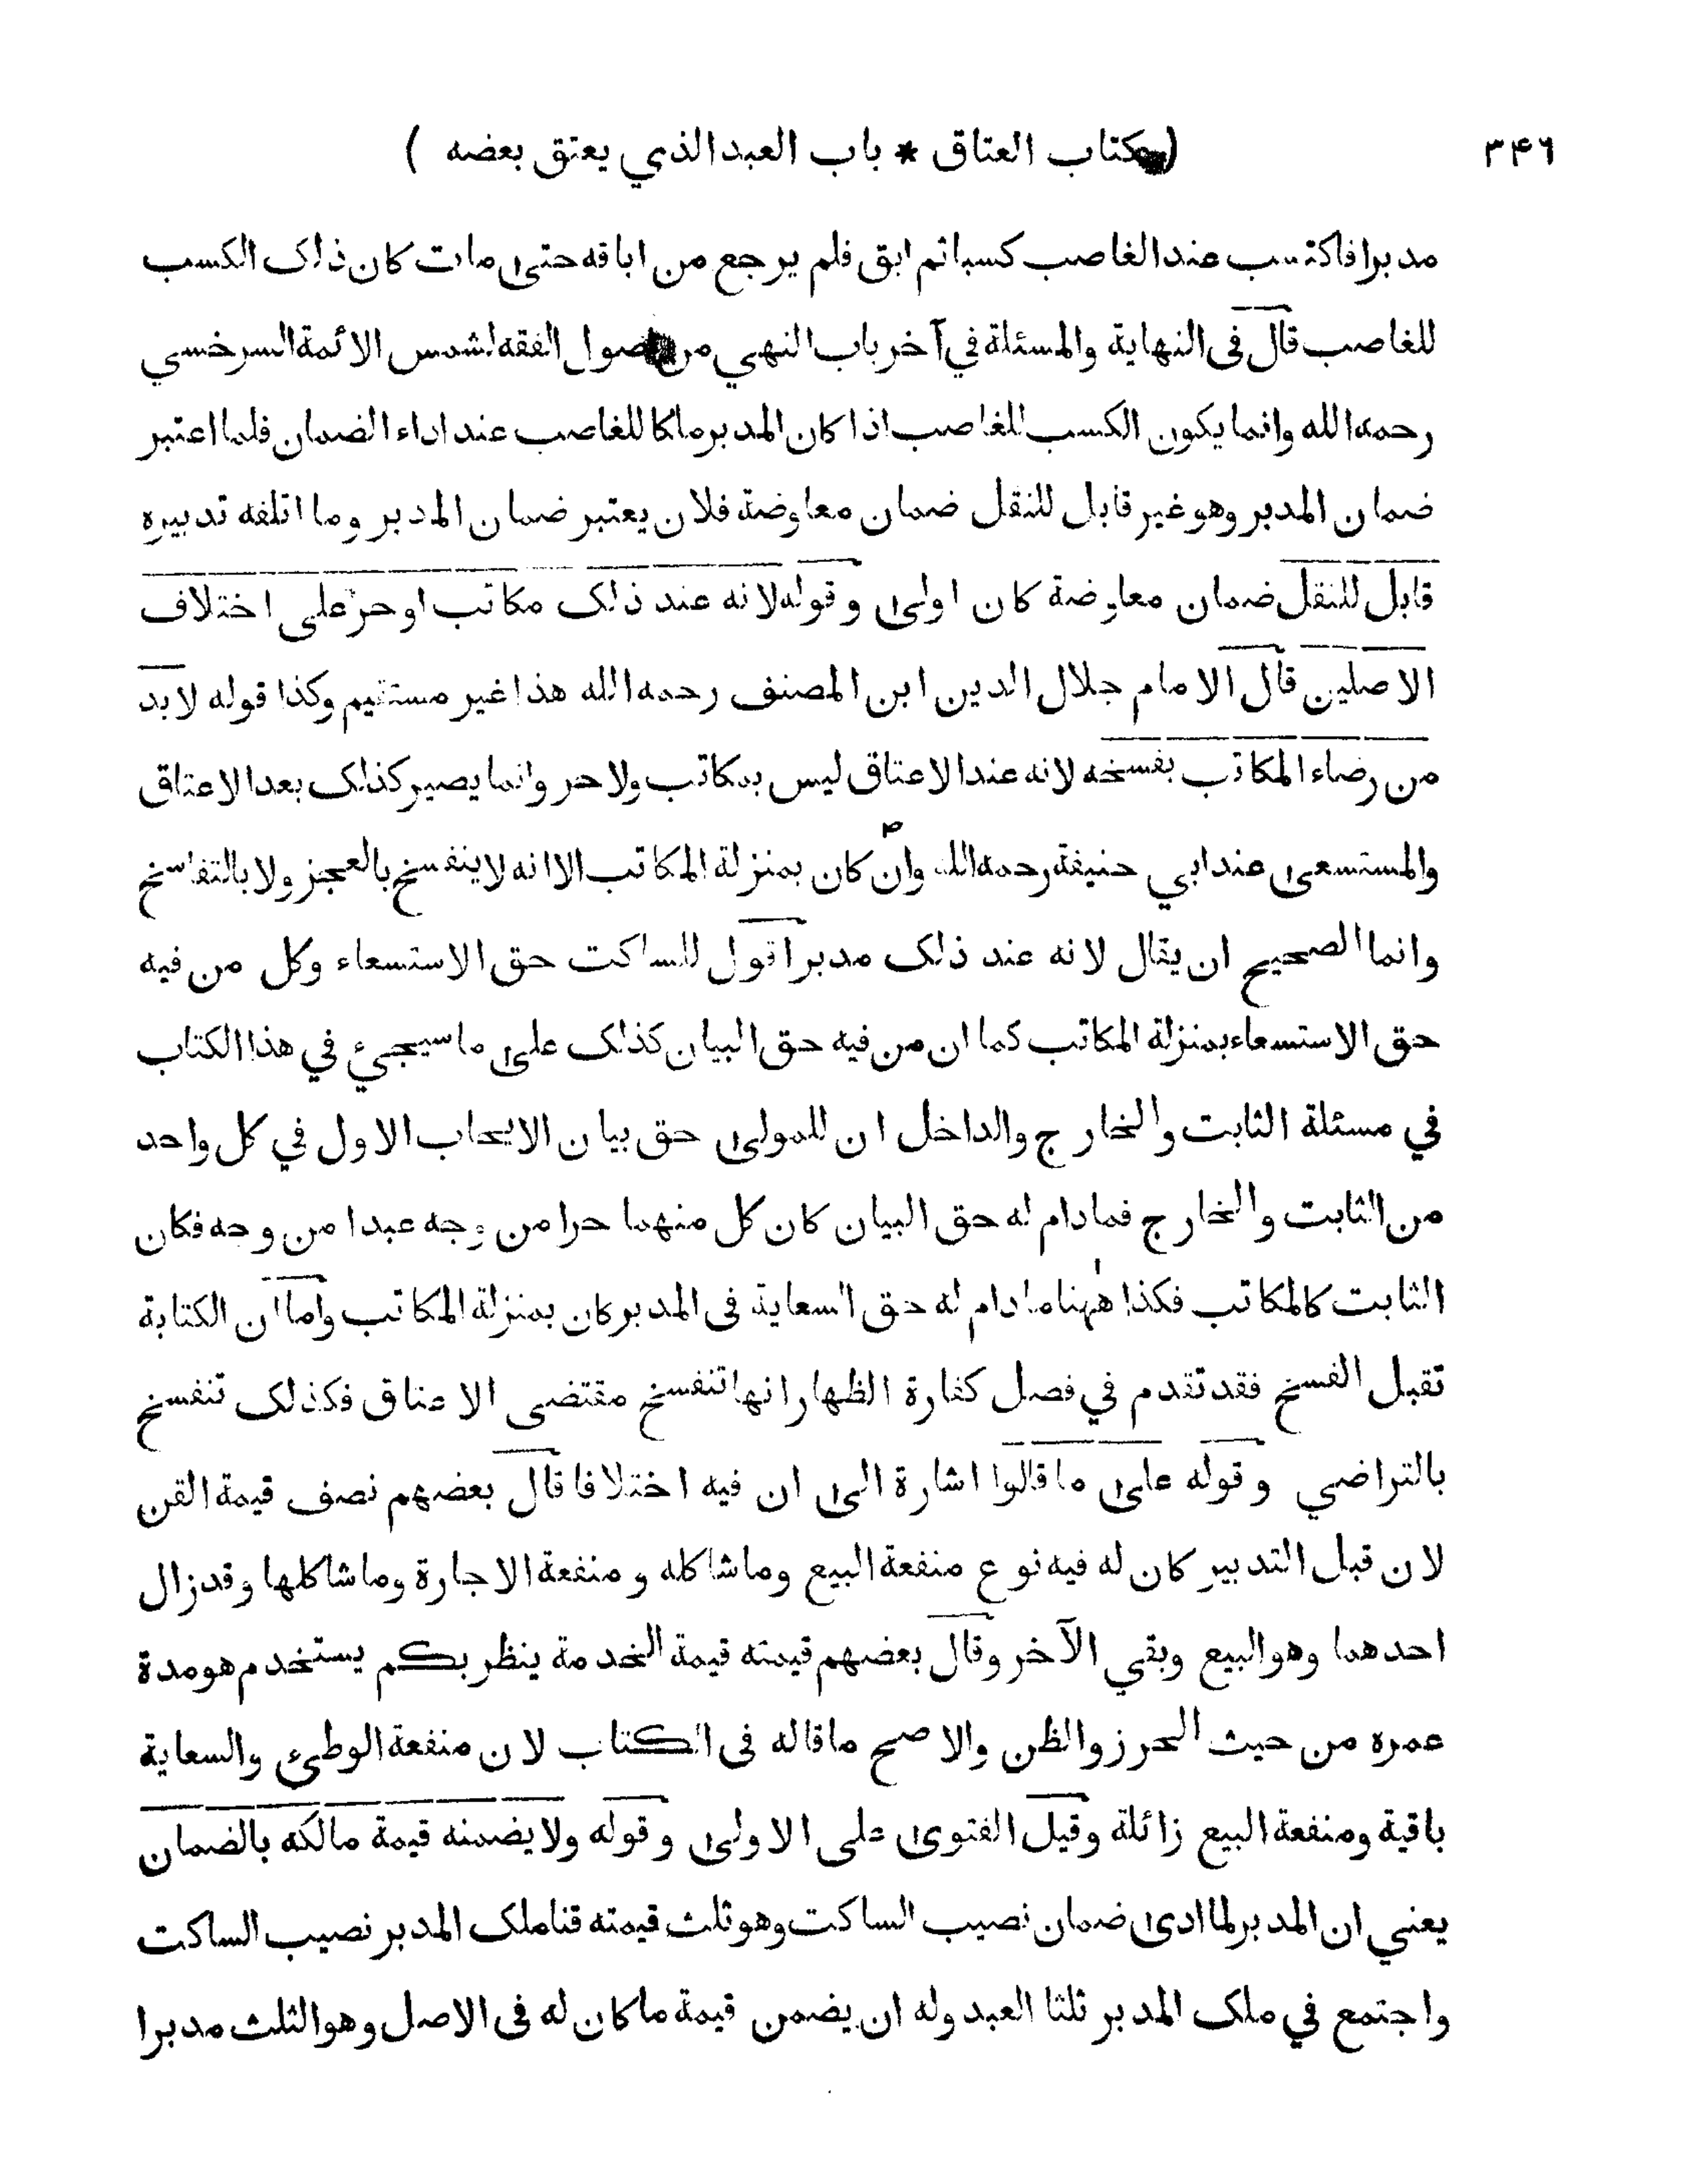 ٣٤٦
( كتاب العتاق * باب العبد الذي يعتق بعضه )
مدبرا فاكتسب عند الغاصب كسبا ثم ابق فلم يرجع من اباقه حتى مات كان ذلك الكسب
للغاصب قال فى النهاية والمسئلة في آخر باب النهي من اصول الفقه لشمس الائمة السرخسي
رحمه الله وانما يكون الكسب للغاصب اذا كان المدبر ملكا للغاصب عند اداء الضمان فلما اعتبر
ضمان المدبر وهو غير قابل للنقل ضمان معاوضة فلان يعتبر ضمان المدبر وما اتلفه تدبيره
قابل للنقل ضمان معاوضة كان اولى وقوله لانه عند ذلك مكاتب او حر على اختلاف
الاصلين قال الامام جلال الدين ابن المصنف رحمه الله هذا غير مستقيم وكذا قوله لابد
من رضاء المكاتب بفسخه لانه عند الاعتاق ليس بمكاتب ولا حر وانما يصير كذلك بعد الاعتاق
والمستسعى عند ابي حنيفة رحمه الله وان كان بمنزلة المكاتب الا انه لا ينفسخ بالعجز ولا بالتفاسخ
وانما الصحيح ان يقال لانه عند ذلك مدبر اقول للساكت حق الاستسعاء وكل من فيه
حق الاستسعاء بمنزلة المكاتب كما ان من فيه حق البيان كذلك على ما سيجيء في هذا الكتاب
في مسئلة الثابت والخارج والداخل ان للمولى حق بيان الايجاب الاول في كل واحد
من الثابت والخارج فما دام له حق البيان كان كل منهما حرا من وجه عبدا من وجه فكان
الثابت كالمكاتب فكذا ههنا ما دام له حق السعاية فى المدبر كان بمنزلة المكاتب واما ان الكتابة
تقبل الفسخ فقد تقدم في فصل كفارة الظهار انها تنفسخ مقتضى الاعتاق فكذلك تنفسخ
بالتراضي وقوله على ما قالوا اشارة الى ان فيه اختلافا قال بعضهم نصف قيمة القن
لان قبل التدبير كان له فيه نوع منفعة البيع وما شاكله ومنفعة الاجارة وما شاكلها وقد زال
احدهما وهو البيع وبقي الآخر وقال بعضهم قيمته قيمة الخدمة ينظر بكم يستخدم هو مدة
عمره من حيث الحرز والظن والاصح ما قاله فى الكتاب لان منفعة الوطىء والسعاية
باقية ومنفعة البيع زائلة وقيل الفتوى على الاولى وقوله ولا يضمنه قيمة ما لكه بالضمان
يعني ان المدبر لما ادى ضمان نصيب الساكت وهو ثلث قيمته قنا ملك المدبر نصيب الساكت
واجتمع في ملك المدبر ثلثا العبد وله ان يضمن قيمة ما كان له فى الاصل وهو الثلث مدبرا